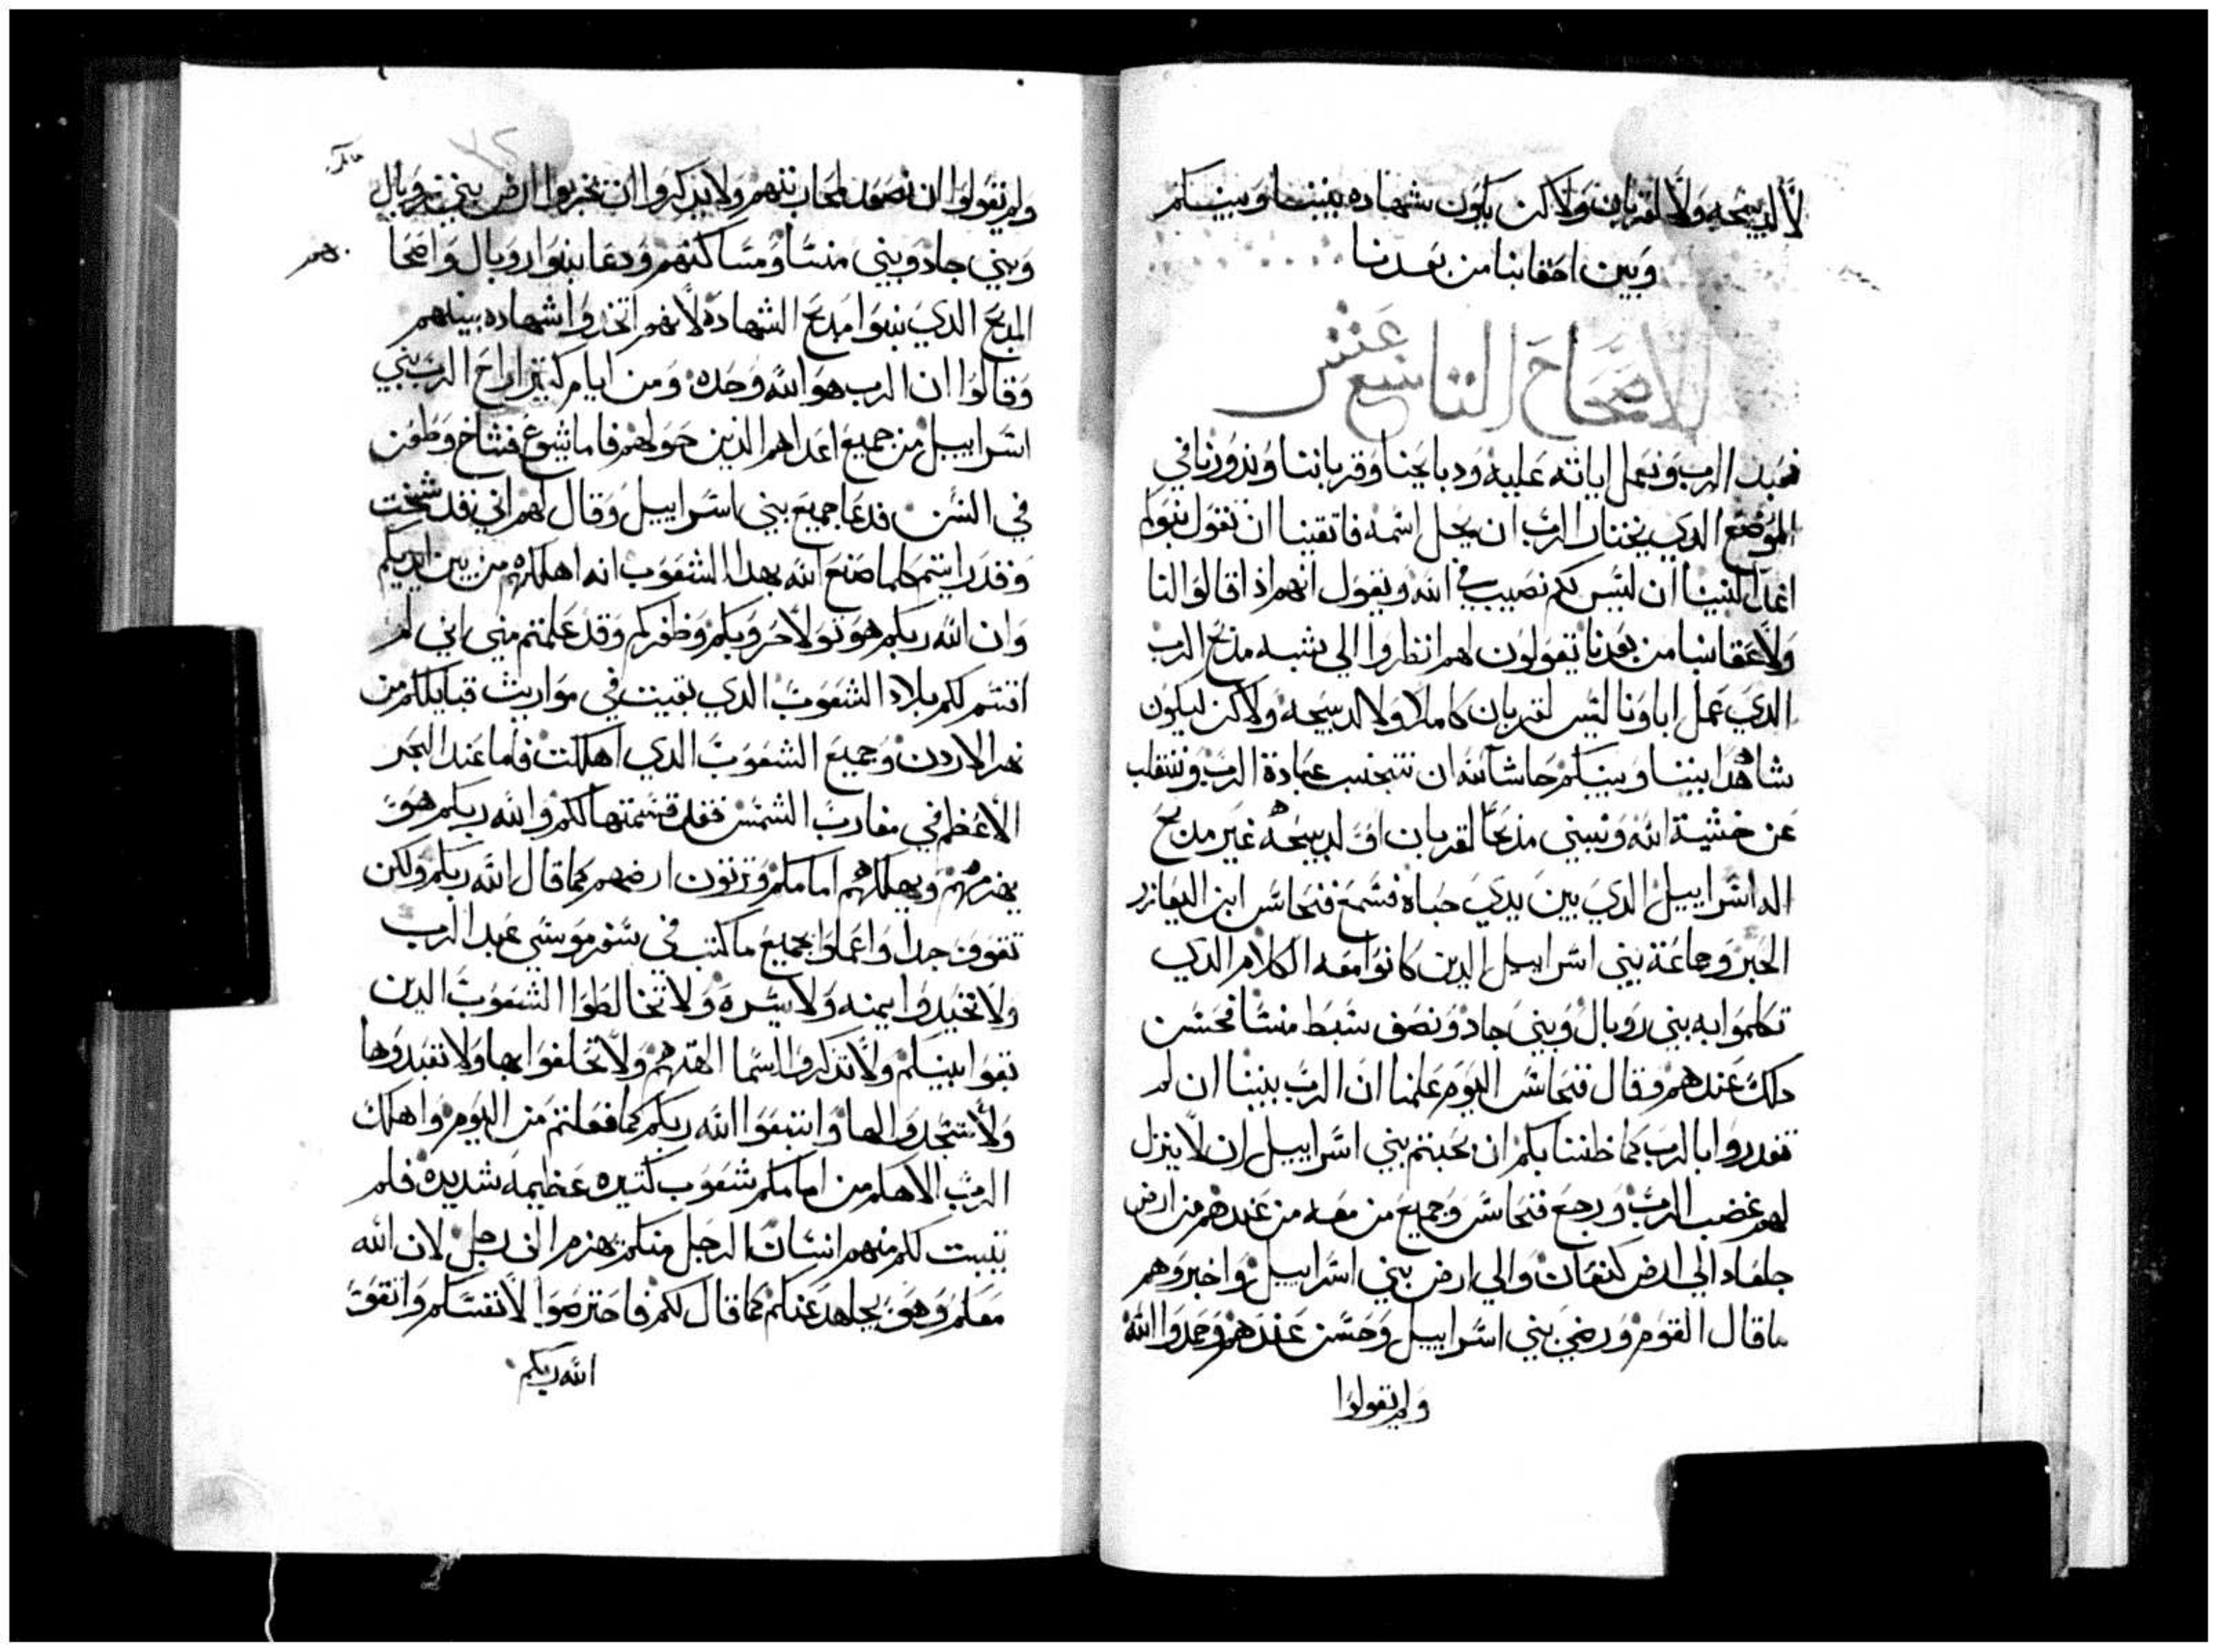 لا لدبيحه ولا لقربان ولاكن يكون شهاده بيننا وبينكم
وبين احقابنا من بعدنا
الاصحاح التاسع عشر
نعبد الرب ونعمل اياته عليه ودبايحنا وقرباننا وندورنا في
الموضع الدي يختار الرب ان يحل اسمه فاتقينا ان تقول بنوكم
غدا لبنينا ان ليس لكم نصيب في الله ونقول انهم اذا قالوا لنا
ولاعقابنا من بعدنا تقولون لهم انظروا الي شبه مدبح الرب
الدي عمل اباونا ليس لقربان كاملا ولا لدبيحه ولاكن ليكون
شاهدا بيننا وبينكم حاشا لله ان نتجنب عبادة الرب وننقلب
عن خشية الله ونبني مذبحا لقربان او لدبيحه غير مدبح
اله اسراييل الدي بين يدي خباه فسمع فنحاس ابن اليعازر
الحبر وجماعة بني اسراييل الدين كانوا معه الكلام الدي
تكلموا به بني روبال وبني جاد ونصف سبط منسا فحسن
دلك عندهم وقال فنحاس اليوم علمنا ان الرب بيننا ان لم
تغدروا بالرب كما ظننا بكم ان نجيتم بني اسراييل ان لا ينزل
لهم غضب الرب ورجع فنحاس وجميع من معه من عندهم من ارض
جلعاد الي ارض كنعان والي ارض بني اسراييل واخبروهم
ما قال القوم ورضي بني اسراييل وحسن عندهم وحمدوا الله
ولم تقولوا
ولم تقولوا ان نصعد لمحاربتهم ولا يدكروا ان تخربوا ارض بني روبال
وبني جاد وبني منسا ومساكنهم ودعا بنوا روبال واصحا
المدبح الدي بنوا مدبح الشهاده لانهم اتخدوا شهاده بينهم
وقالوا ان الرب هو الله وحده ومن ايام كثير اراح الرب بني
اسراييل من جميع اعداهم الذين حولهم فاما يشوع فشاخ وطعن
في السن فدعا جميع بني اسراييل وقال لهم اني قد شخت
وقد رايتم كلما صنع الله بهدا الشعوب انه اهلكهم من بين ايديكم
وان الله ربكم هو تولا حروبكم وظفركم وقد علمتم مني اني لم
اقسم لكم بلاد الشعوب الدي بقيت في مواريث قبايلكم من
نهر الاردن وجميع الشعوب الدي اهلكت فاما عند البحر
الاعظم في مغارب الشمس فقد قسمتها لكم والله ربكم هو
يهزمهم ويهلكهم امامكم وترثون ارضهم كما قال الله ربكم ولكن
تقوو جدا واعملوا بجميع ما كتب في سفر موسي عبد الرب
ولا تحيدوا يمنه ولا يسره ولا تخالطوا الشعوب الدين
بقوا بينكم ولا تدكروا اسما الهتهم ولا تحلفوا بها ولا تعبدوها
ولا تسجدوا لها واتبعوا الله ربكم كما فعلتم من اليوم واهلك
الرب الاهكم من امامكم شعوب كتيره عظيمه شديده فلم
يتبت لكم منهم انسان الرجل منكم يهزم الف رجل لان الله
معكم وهو يجاهد عنكم كما قال لكم فاحترصوا لانفسكم واتقوا
الله ربكم